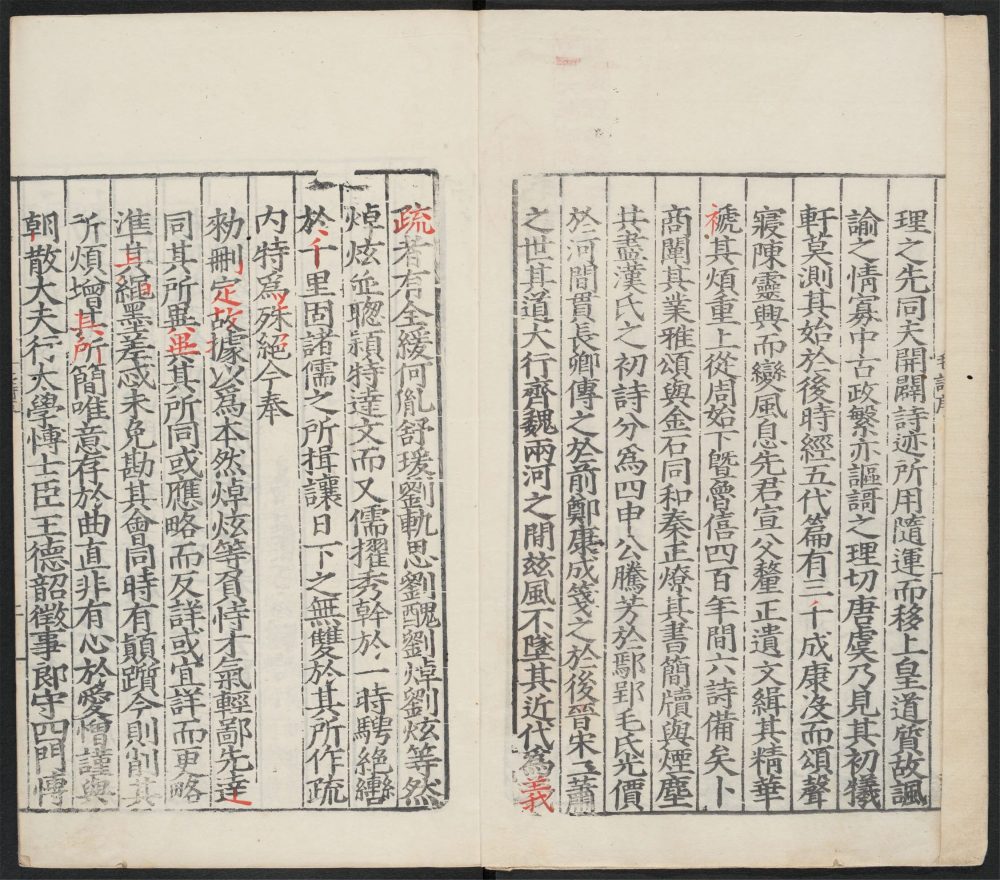 理之先同夫開闢詩迹所用隨運而移上皇道質故諷
諭之情寡中古政繁亦謳謌之理切唐虞乃見其初犧
軒莫測其始於後時經五代篇有三千成康沒而頌聲
寢陳靈興而變風息先君宣父釐正遺文緝其精華
褫其煩重上從周始下曁魯僖四百年間六詩備矣卜
商闡其業雅頌與金石同和秦正燎其書簡牘與煙塵
共盡漢氏之初詩分爲四申公騰芳於鄢郢毛氏光價
於河間貫長卿傳之於前鄭康成箋之於後晉宋二蕭
之世其道大行齊魏兩河之間兹風不墜其近代爲義
疏者有全緩何胤舒瑗劉軌思劉醜劉焯劉炫等然
焯炫並聦穎特達文而又儒擢秀幹於一時騁絕轡
於千里固諸儒之所揖讓日下之無雙於其所作疏
内特爲殊絕今奉
勑刪定故據以爲本然焯炫等負恃才氣輕鄙先達
同其所異異其所同或應略而反詳或宜詳而更略
準其繩墨差忒未免勘其會同時有顛躓今則削其
所煩增其所簡唯意存於曲直非有心於愛憎謹與
朝散大夫行太學博士臣王德韶徵事郎守四門博